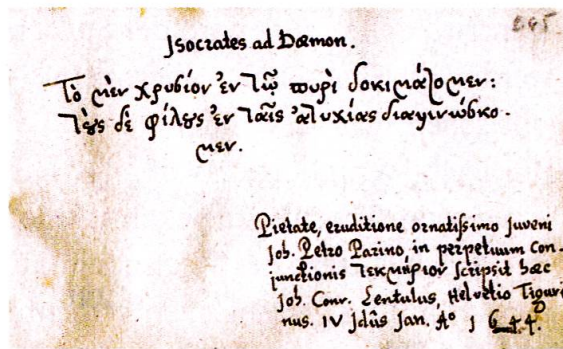 Isocrates ad Dæmon.
Τὸ μὲν χρυσίον ἐν τῷ πυρὶ δοκιμάζομεν:
τὲς δὲ φίλες ἐν ταῖς ἀτυχίας διαγινώσκο-
μεν.
Pietate, eruditione ornatissimo Juveni
Joh. Petro Parino, in perpetuum con-
junctionis τεκμήριον scripsit hæc
Joh. Conr. Lentulus, Helvetio Tiguri-
nus. IV Jdûs Jan. Aº 1644.